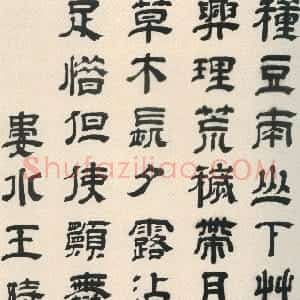 種豆南山下艸
興理荒穢帶月
草木長夕露沾
足惜但使願無
婁水王時
Shufaziliao.COM